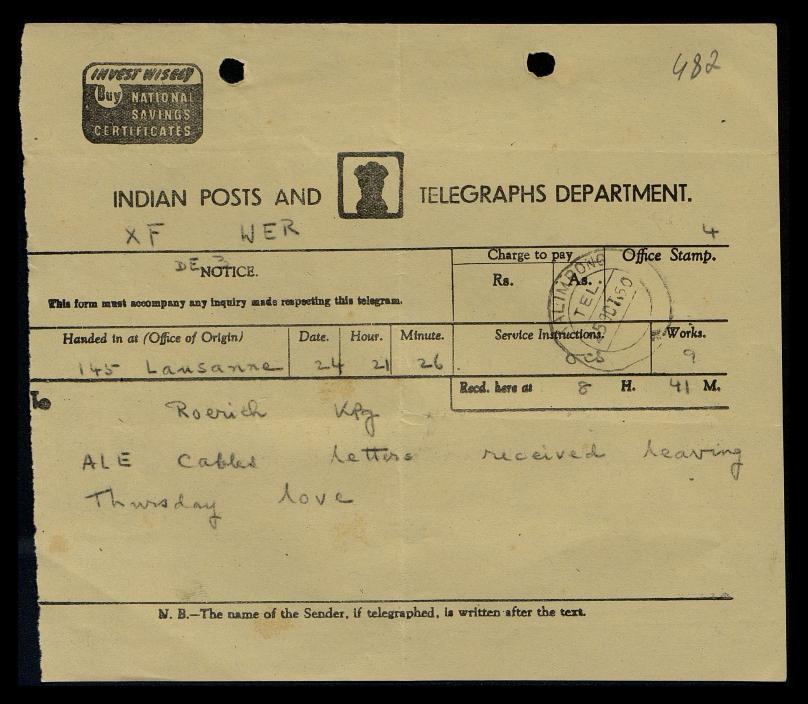 482
INVEST WISELY
Buy NATIONAL
SAVINGS
CERTIFICATES
INDIAN POSTS AND TELEGRAPHS DEPARTMENT.
XF WER 4
DE 3
NOTICE.
This form must accompany any inquiry made respecting this telegram.
Charge to pay
Rs. As.
Office Stamp.
ALIMPONG
TEL.
25 OCT. 50
Handed in at (Office of Origin) Date. Hour. Minute. Service Instructions. Works.
145 Lausanne 24 21 26 9
Recd. here at 8 H. 41 M.
To
Roerich Kpg
ALE Cables letters received leaving
Thursday love
N. B.—The name of the Sender, if telegraphed, is written after the text.